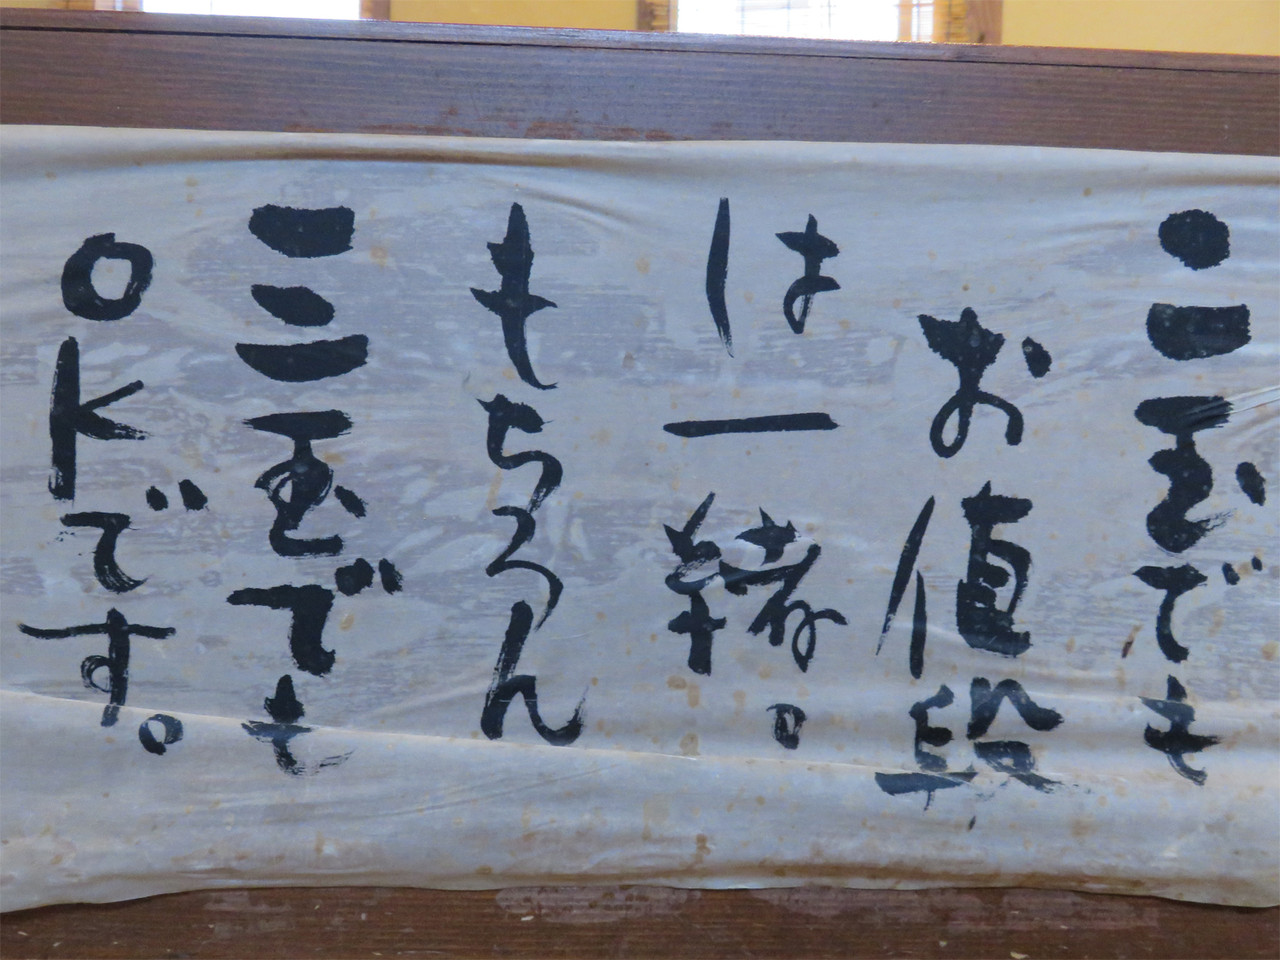 二玉でも
お値段
は一緒。
もちろん
三玉でも
OKです。